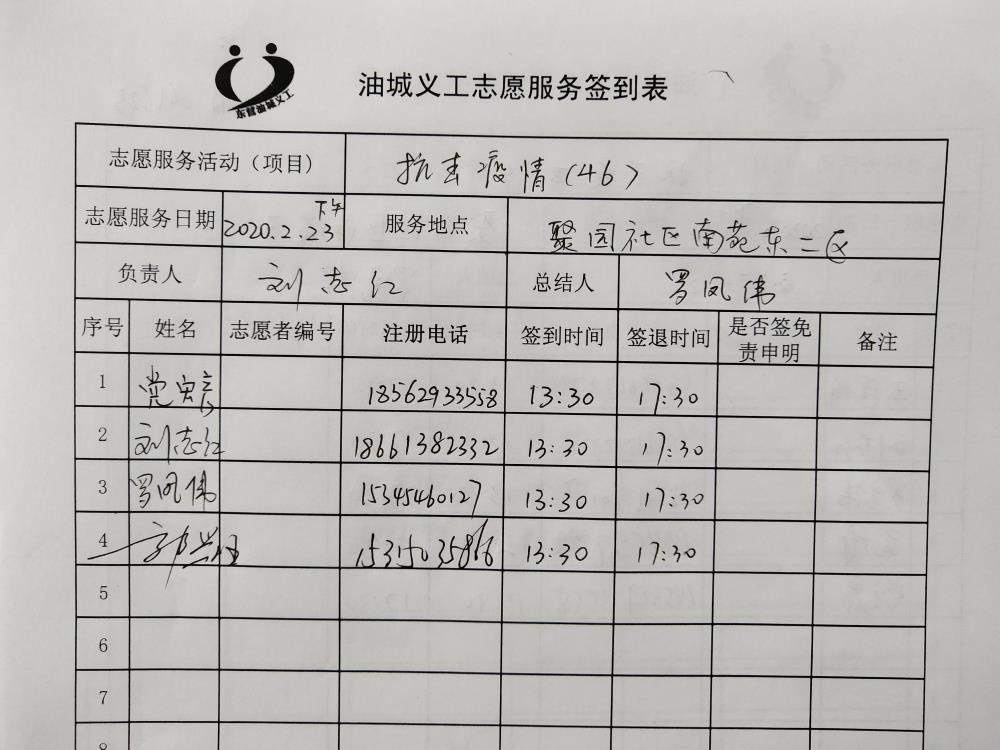 东营油城义工
油城义工志愿服务签到表
志愿服务活动（项目） 抗击疫情（46）
志愿服务日期 2020.2.23下午 服务地点 聚园社区南苑东二区
负责人 刘志红 总结人 罗凤伟
序号 姓名 志愿者编号 注册电话 签到时间 签退时间 是否签免责申明 备注
1 党宏彦 18562933558 13:30 17:30
2 刘志红 18661382332 13:30 17:30
3 罗凤伟 15345460127 13:30 17:30
4 郭兴 15315035866 13:30 17:30
5
6
7
8